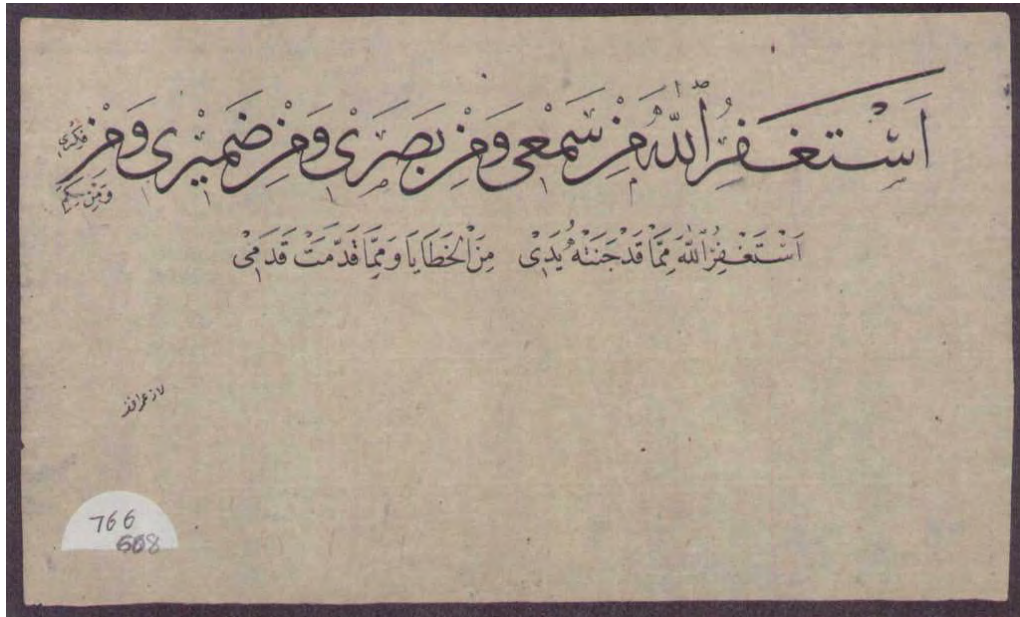 اَسْتَغْفِرُ اللّٰهَ مِنْ سَمْعِى وَمِنْ بَصَرِىْ وَمِنْ ضَمِيْرِى وَمِنْ فِكْرِىْ
اَسْتَغْفِرُ اللّٰهَ مِمَّا قَدْ جَنَتْهُ يَدِىْ مِنَ الْخَطَايَا وَمِمَّا قَدَّمَتْ قَدَمِىْ
766
608